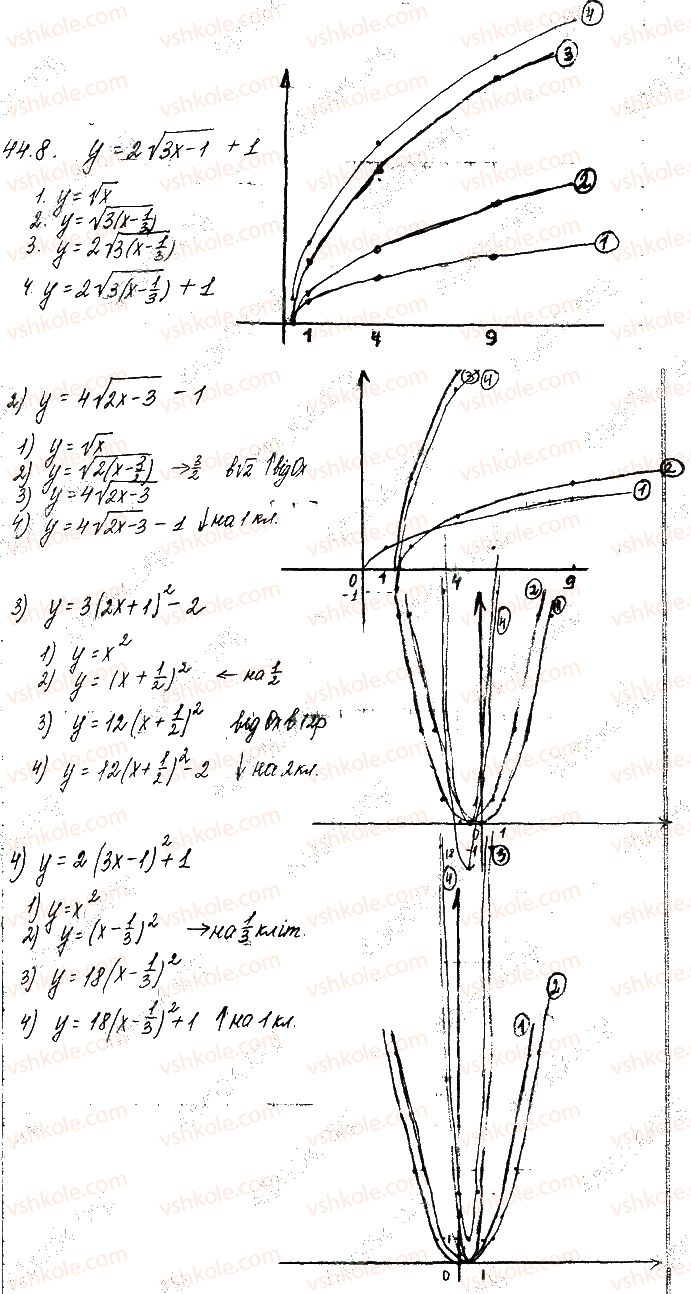 44.8. y = 2√(3x-1) + 1
1. y = √x
2. y = √(3(x-1/3))
3. y = 2√(3(x-1/3))
4. y = 2√(3(x-1/3)) + 1
4
3
2
1
1 4 9
2) y = 4√(2x-3) - 1
1) y = √x
2) y = √(2(x-3/2)) → 3/2 в√2 ↑ від Ox
3) y = 4√(2x-3)
4) y = 4√(2x-3) - 1 ↓ на 1 кл.
3 4
2
1
0 1 4 9
-1
3) y = 3(2x+1)² - 2
1) y = x²
2) y = (x+1/2)² ← на 1/2
3) y = 12(x+1/2)² від Ox в 12р
4) y = 12(x+1/2)² - 2 ↓ на 2кл.
4
2
0 1
3
4) y = 2(3x-1)² + 1
1) y = x²
2) y = (x-1/3)² → на 1/3 кліт.
3) y = 18(x-1/3)²
4) y = 18(x-1/3)² + 1 ↑ на 1 кл.
4
2
1
0 1
vshkole.com